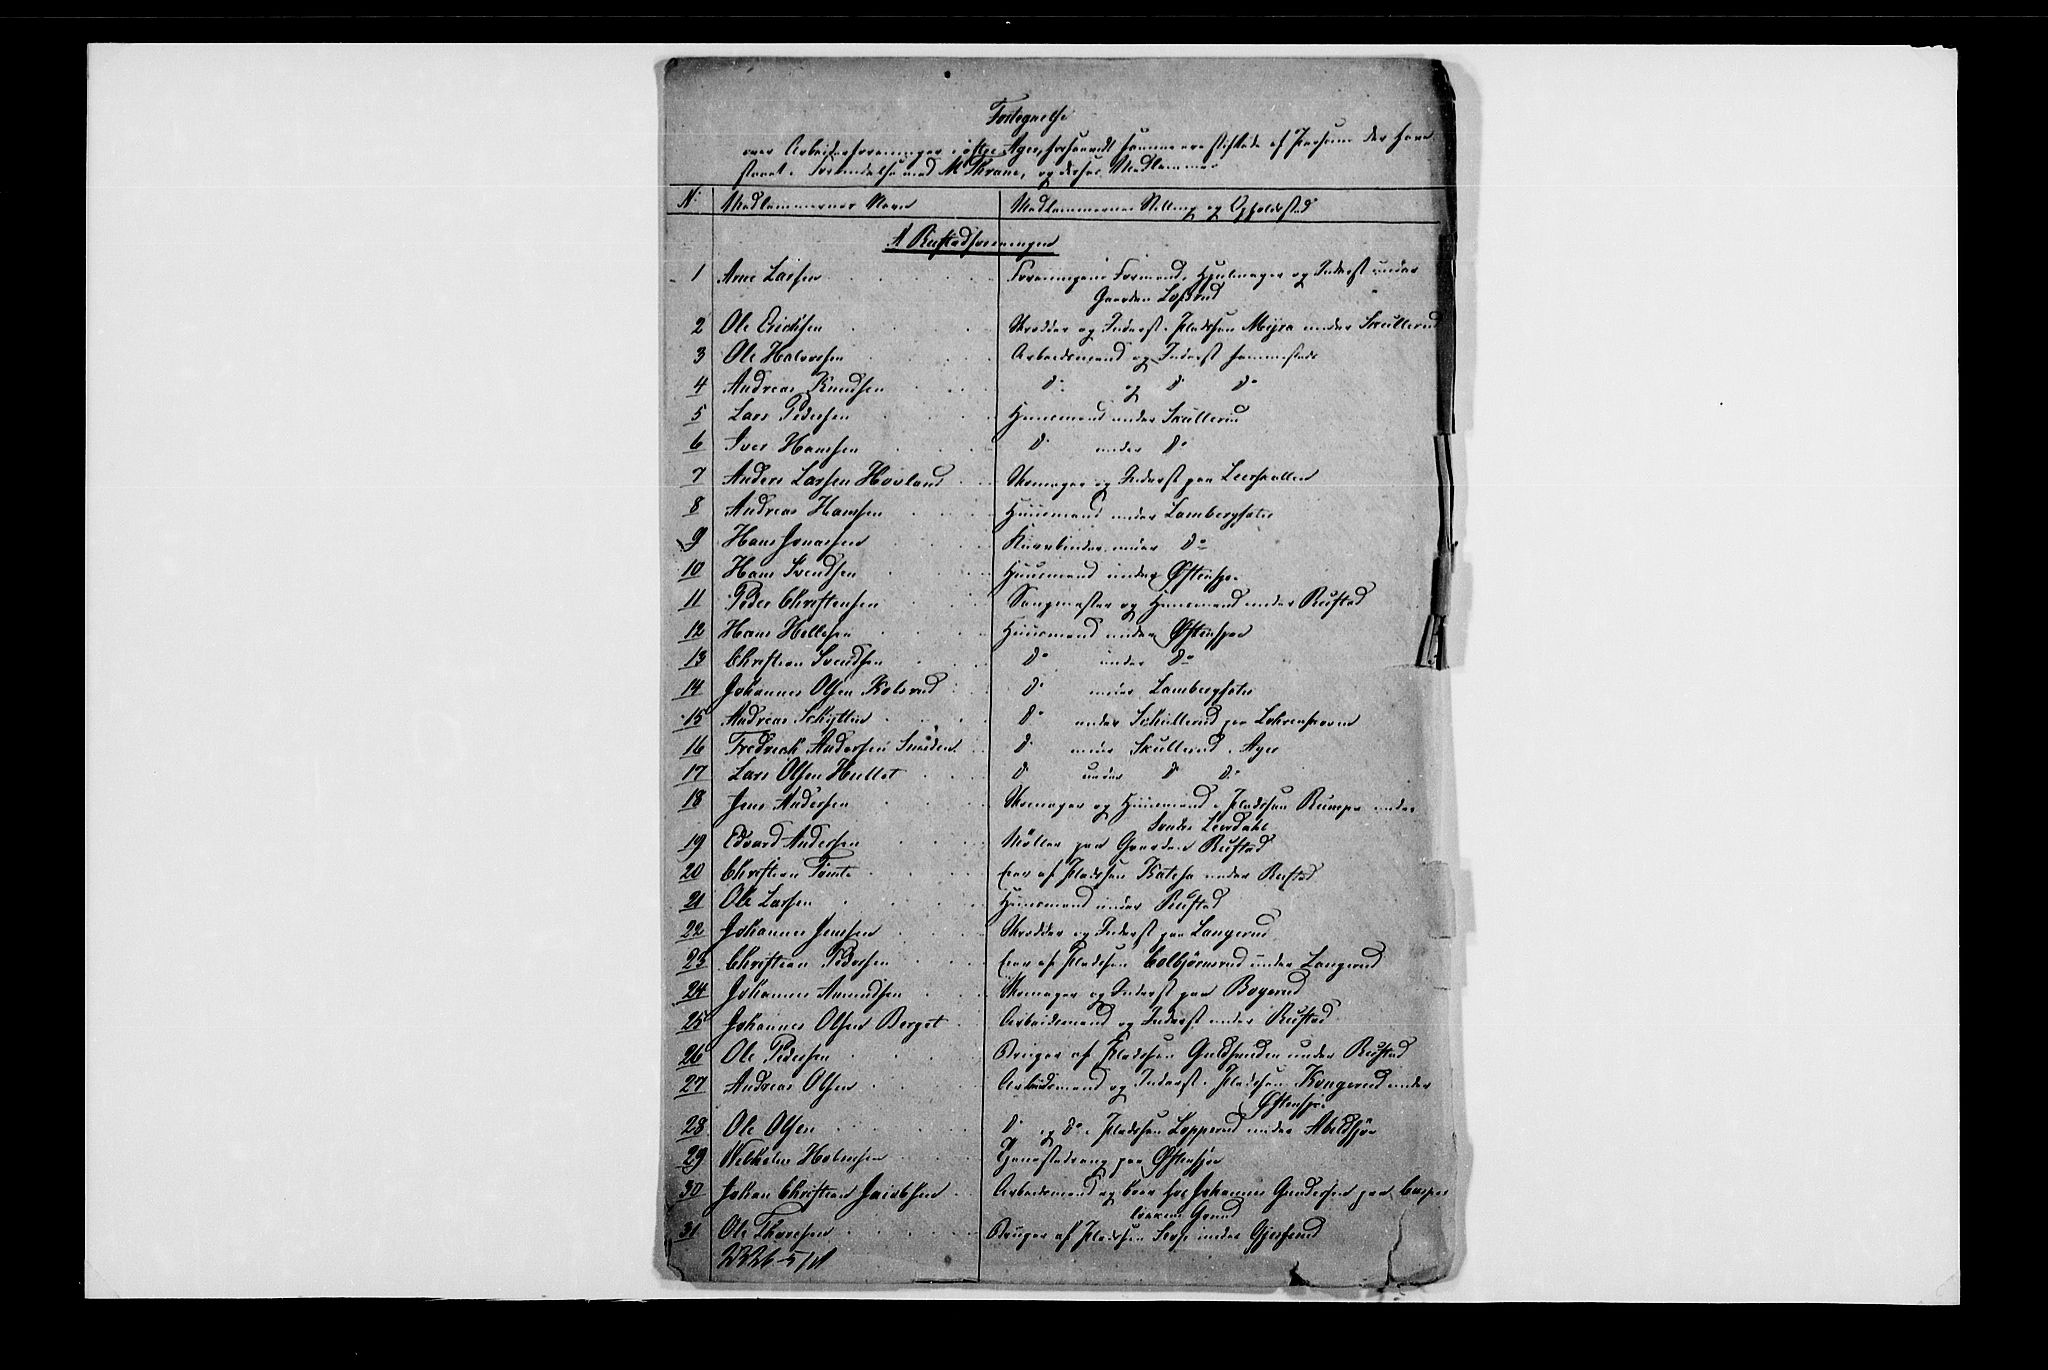 Fortegnelse
over Arbeiderforeninger i østre Ager, forsaavidt samme ere stiftede af Personer der have
staaet i Forbindelse med M Thrane, og disses Medlemmer
N: Medlemmernes Navn Medlemmernes Stilling og Opholdssted
A Rustadforeningen
1 Arne Larsen Foreningens Formand, Hjulmager og Inderst under
Gaarden Lofsrud
2 Ole Erichsen Skrædder og Inderst i Pladsen Myra under Skullerud
3 Ole Halvorsen Arbeidsmand og Inderst sammesteds
4 Andreas Knudsen do og do do
5 Lars Pedersen Huusmand under Skullerud
6 Iver Hansen do under do
7 Anders Larsen Hovland Skomager og Inderst paa Leerskallen
8 Andreas Hansen Huusmand under Lambergsæter
9 Hans Jonassen Kurvbinder under do
10 Hans Svendsen Huusmand under Østensjø
11 Peder Christensen Saugmester og Huusmand under Rustad
12 Hans Hellesen Huusmand under Østensjøe
13 Christian Svendsen do under do
14 Johannes Olsen Kolsrud do under Lambergsæter
15 Andreas Schytten do under Schullerud paa
16 Fredrick Andersen Smeden do under Skullerud i Ager
17 Lars Olsen Hullet do under do do
18 Jens Andersen Skomager og Huusmand i Pladsen Rumpa under
Søndre Leerdahl
19 Edvard Andersen Møller paa Gaarden Rustad
20 Christian Tomte Eier af Pladsen Katesa under Rustad
21 Ole Larsen Huusmand under Rustad
22 Johannes Jensen Skrædder og Inderst paa Langerud
23 Christian Pedersen Eier af Pladsen Colbjørnsrud under Langerud
24 Johannes Amundsen Skomager og Inderst paa Bogerud
25 Johannes Olsen Berget Arbeidsmand og Inderst under Rustad
26 Ole Pedersen Bruger af Pladsen Guldsmeden under Rustad
27 Andreas Olsen Arbeidsmand og Inderst i Pladsen Kongerud under
Østensjø
28 Ole Olsen do og do i Pladsen Lopperud under Abildsjø
29 Wilhelm Halvorsen Tjenestedreng paa Østensjøe
30 Johan Christian Jacobsen Arbeidsmand og boer hos Johannes Gundersen paa Casper
Grund
31 Ole Thoresen Bruger af Pladsen under Gjersrud